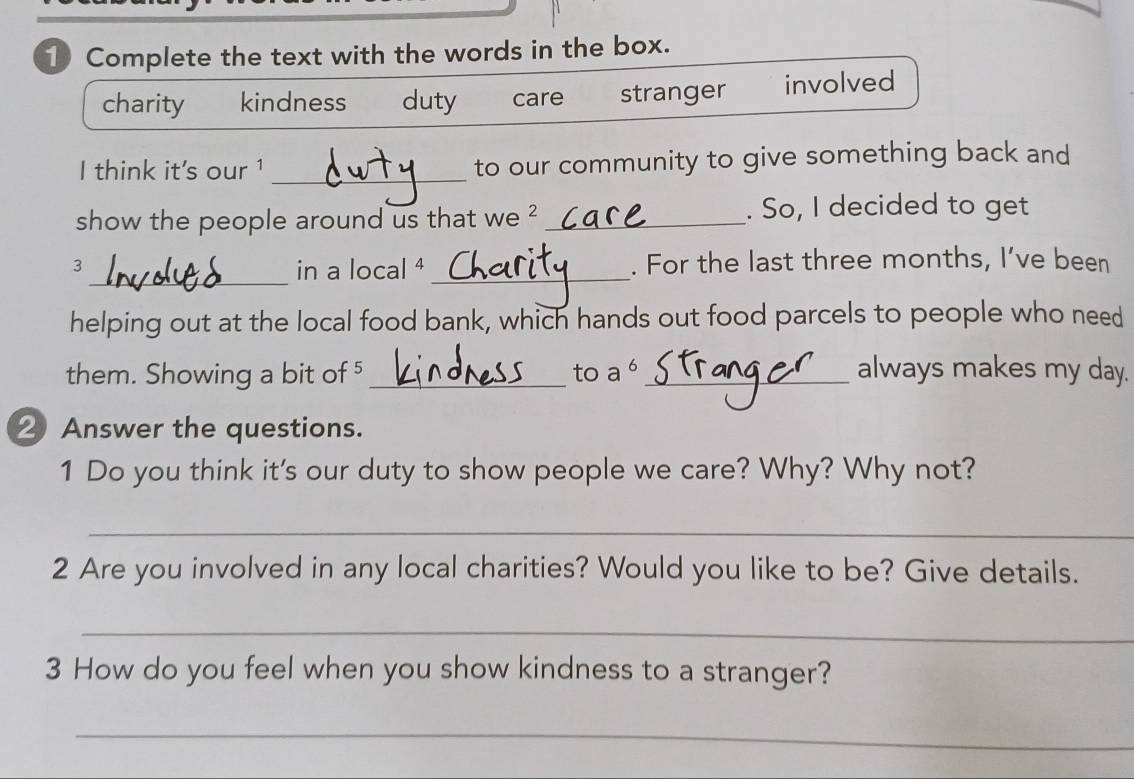 1 Complete the text with the words in the box.
charity kindness duty care stranger involved
I think it's our 1 duty to our community to give something back and
show the people around us that we 2 care. So, I decided to get
3 Involved in a local 4 Charity. For the last three months, I've been
helping out at the local food bank, which hands out food parcels to people who need
them. Showing a bit of 5 kindness to a 6 Stranger always makes my day.
2 Answer the questions.
1 Do you think it's our duty to show people we care? Why? Why not?
2 Are you involved in any local charities? Would you like to be? Give details.
3 How do you feel when you show kindness to a stranger?